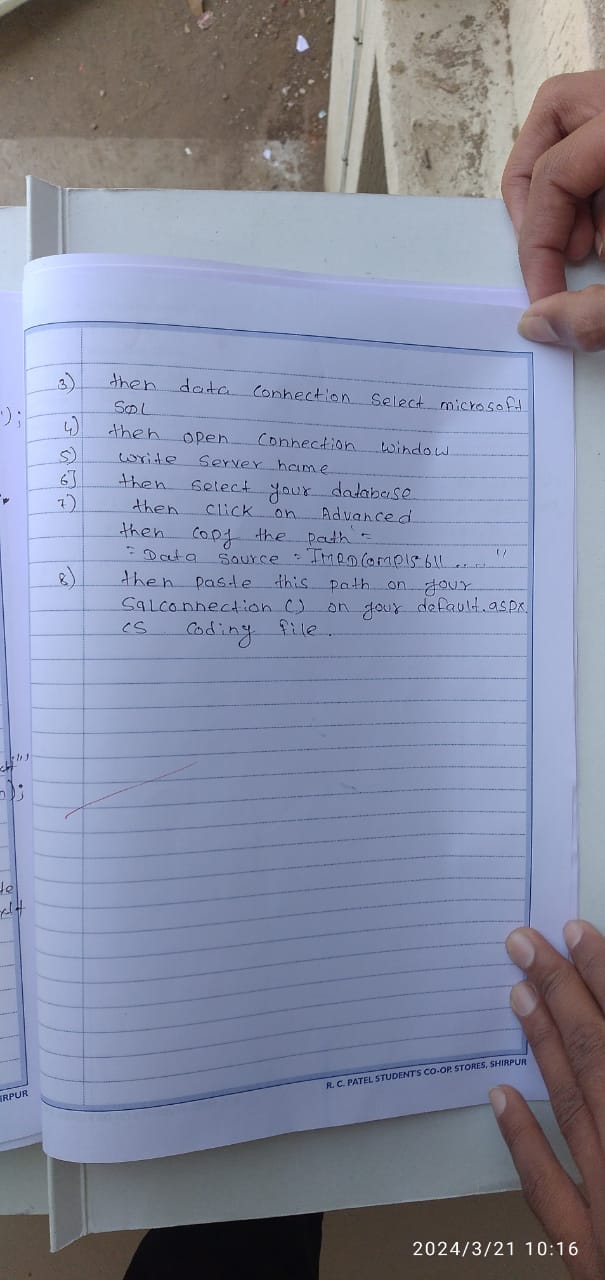 3) then data connection select microsoft
SQL
4) then open connection window
5) write server name
6] then select your database
7) then click on Advanced
then copy the path =
= Data Source =
8) then paste this path on your
Sqlconnection () on your default.aspx.
cs coding file.
");
");
R. C. PATEL STUDENT'S CO-OP. STORES, SHIRPUR
IRPUR
2024/3/21 10:16